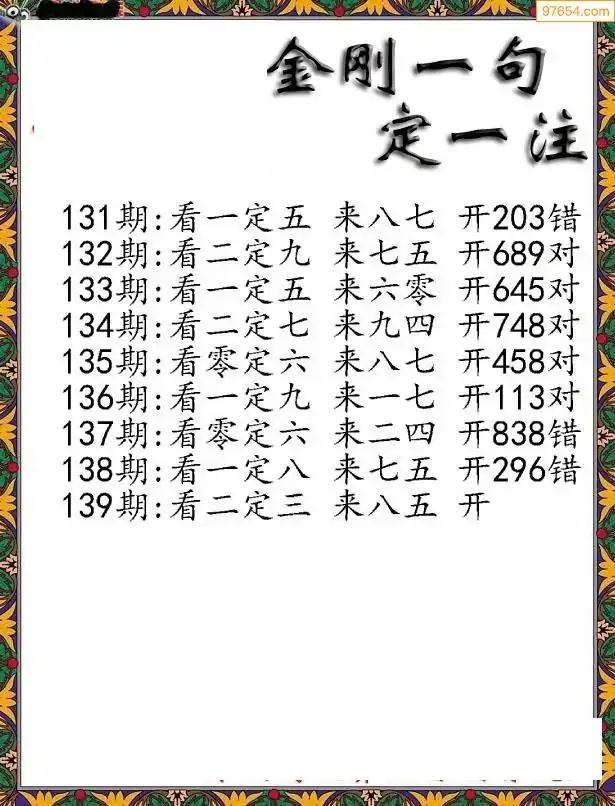 97654.com
金刚一句
定一注
131期:看一定五 来八七 开203错
132期:看二定九 来七五 开689对
133期:看一定五 来六零 开645对
134期:看二定七 来九四 开748对
135期:看零定六 来八七 开458对
136期:看一定九 来一七 开113对
137期:看零定六 来二四 开838错
138期:看一定八 来七五 开296错
139期:看二定三 来八五 开